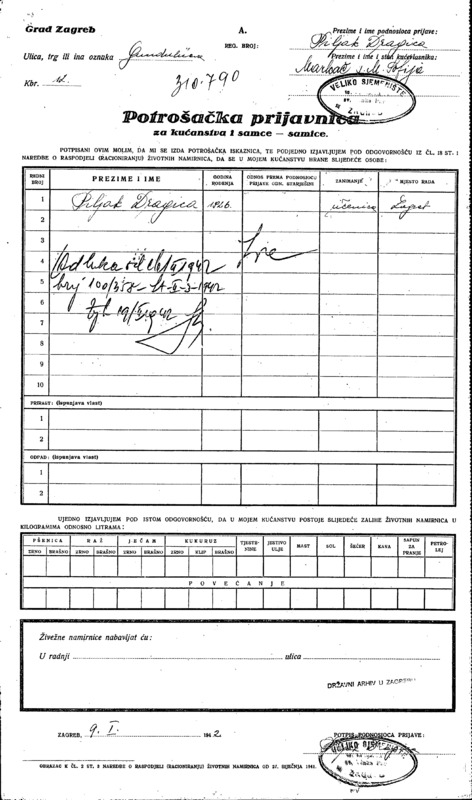 Grad Zagreb
A.
Prezime i ime podnosioca prijave:
Piljak Dragica
Ulica, trg ili ina oznaka Gundulićeva
REG. BROJ:
310.790
Prezime i ime i stan kućevlasnika:
Kbr.
VELIKO SJEMENIŠTE
Zagreb
Potrošačka prijavnica
za kućanstva i samce — samice.
POTPISANI OVIM MOLIM, DA MI SE IZDA POTROŠAČKA ISKAZNICA, TE PODJEDNO IZJAVLJUJEM POD ODGOVORNOŠĆU IZ ČL. 18 ST. 1
NAREDBE O RASPODJELI (RACIONIRANJU) ŽIVOTNIH NAMIRNICA, DA SE U MOJEM KUĆANSTVU HRANE SLIJEDEĆE OSOBE:
REDNI BROJ
PREZIME I IME
GODINA ROĐENJA
ODNOS PREMA PODNOSIOCU PRIJAVE ODN. STARJEŠINI
ZANIMANJE
MJESTO RADA
1 Piljak Dragica 1926. učenica Zagreb
2
3
4 Odluka od
5 broj 100/
6
7
8
9
10
PRIRAST: (Ispunjava vlast)
1
2
ODPAD: (Ispunjava vlast)
1
2
UJEDNO IZJAVLJUJEM POD ISTOM ODGOVORNOŠĆU, DA U MOJEM KUĆANSTVU POSTOJE SLIJEDEĆE ZALIHE ŽIVOTNIH NAMIRNICA U
KILOGRAMIMA ODNOSNO LITRAMA:
PŠENICA RAŽ JEČAM KUKURUZ TJESTENINE JESTIVO ULJE MAST SOL ŠEĆER KAVA SAPUN ZA PRANJE PETROLEJ
ZRNO BRAŠNO ZRNO BRAŠNO ZRNO BRAŠNO ZRNO KLIP BRAŠNO
POVEĆANJE
Živežne namirnice nabavljat ću:
U radnji ulica
DRŽAVNI ARHIV U ZAGREBU
ZAGREB, 9. I. 1942
POTPIS PODNOSIOCA PRIJAVE:
VELIKO SJEMENIŠTE
Zagreb
OBRAZAC K ČL. 2 ST. 2 NAREDBE O RASPODJELI (RACIONIRANJU) ŽIVOTNIH NAMIRNICA OD 27. SIJEČNJA 1941.